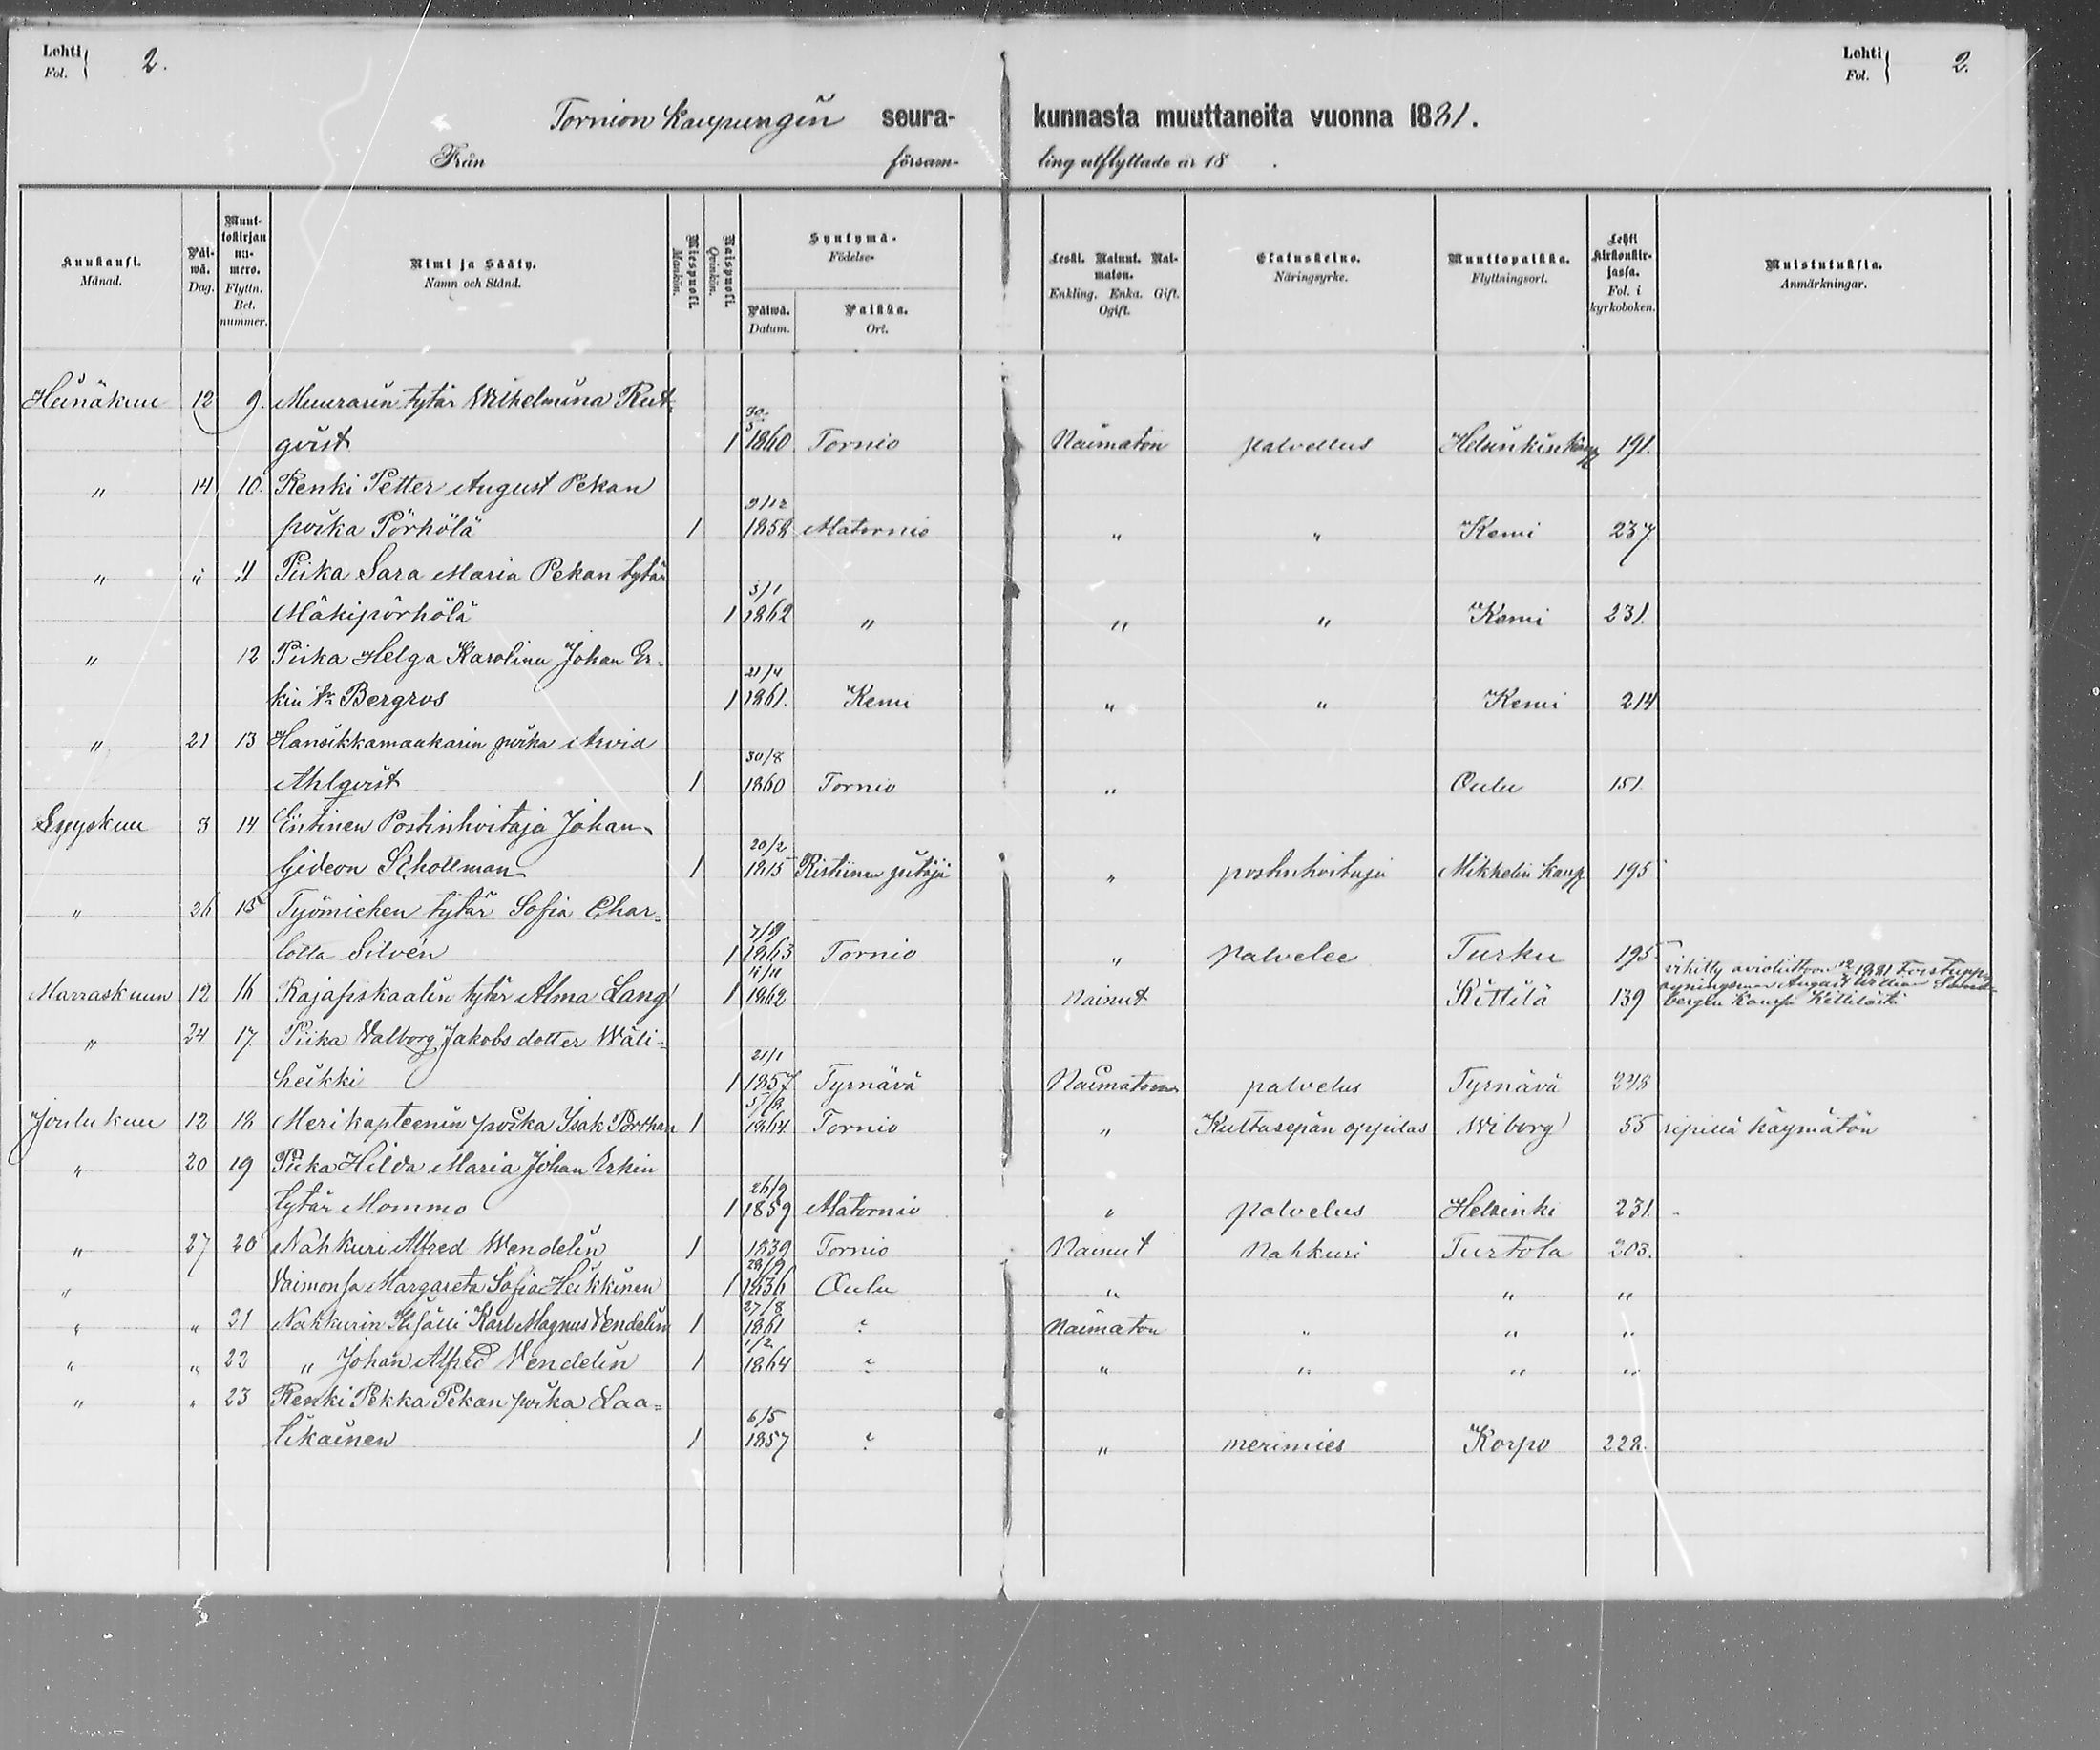 Lehti Fol. 2. Lehti Fol. 2.
Tornion Kaupungin seura- kunnasta muuttaneita vuonna 1881.
Från försam- ling utflyttade år 18 .
Kuukausi. Månad. Päi-wä. Dag. Muut-tokirjan nu-mero. Flyttn. Bet. nummer. Nimi ja Sääty. Namn och Stånd. Miespuoli. Mankön. Naispuoli. Qvinkön. Syntymä- Födelse- Päiwä. Datum. Paikka. Ort. Leski. Nainut. Nai-maton. Enkling. Enka. Gift. Ogift. Elatuskeino. Näringsyrke. Muuttopaikka. Flyttningsort. Lehti Kirkonkir-jassa. Fol. i kyrkoboken. Muistutuksia. Anmärkningar.
Heinäkuu 12 9. Muurarin tytär Wilhelmina Rut-
qvist 1 30/5 1860 Tornio Naimaton palvellus Helsinkin kaup 191.
" 14 10. Renki Petter August Pekan
poika Pörhölä 1 9/12 1858 Alatornio " " Kemi 237
" " 11 Piika Sara Maria Pekan tytär
Mäkipörhölä 1 3/1 1862 " " " Kemi 231.
" 12 Piika Helga Karolina Johan Er-
kin tr Bergros 1 21/4 1861. Kemi " " Kemi 214
" 21 13 Hansikkamaakarin poika Arvid
Ahlqvist 1 30/8 1860 Tornio " Oulu 151.
Syyskuu 3 14 Entinen Postinhoitaja Johan
Gideon Schollman 1 20/2 1815 Ristiinan pitäjä " postinhoitaja Mikkelin kaup 195
" 26 15 Työmiehen tytär Sofia Char=
lotta Silvén 1 7/19 1863 Tornio " palvelee Turku 195
Marraskuun 12 16 Rajafiskaalin tytär Alma Lang 1 11/11 1862 Nainut Kittilä 139 vihitty avioliittoon 1881 August Willian Sand-
bergen kansa Kittilästä
" 24 17 Piika Valborg Jakobs dotter Wäli=
heikki 1 21/1 1857 Tyrnävä Naimaton palvelus Tyrnävä 248
Joulukuu 12 18 Merikapteenin poika Isak Porthan 1 1864 Tornio " Kultasepän oppilas Wiborg 55 ripillä käymätön
" 20 19 Piika Hilda Maria Johan Erkin
tytär Mommo 1 26/9 1859 Alatornio " palvelus Helsinki 231.
" 27 20 Nahkuri Alfred Wendelin 1 1839 Tornio Nainut Nahkuri Turtola 203.
" Vaimonsa Margareta Sofia Heikkinen 1 28/9 1836 Oulu " " "
" " 21 Nahkurin Kisälli Karl Magnus Vendelin 1 27/8 1861 " Naimaton " " "
" " 22 " Johan Alfred Vendelin 1 1/2 1864 " " " " "
" " 23 Renki Pekka Pekan poika Laa=
tikainen 1 6/5 1857 " " merimies Korpo 228.